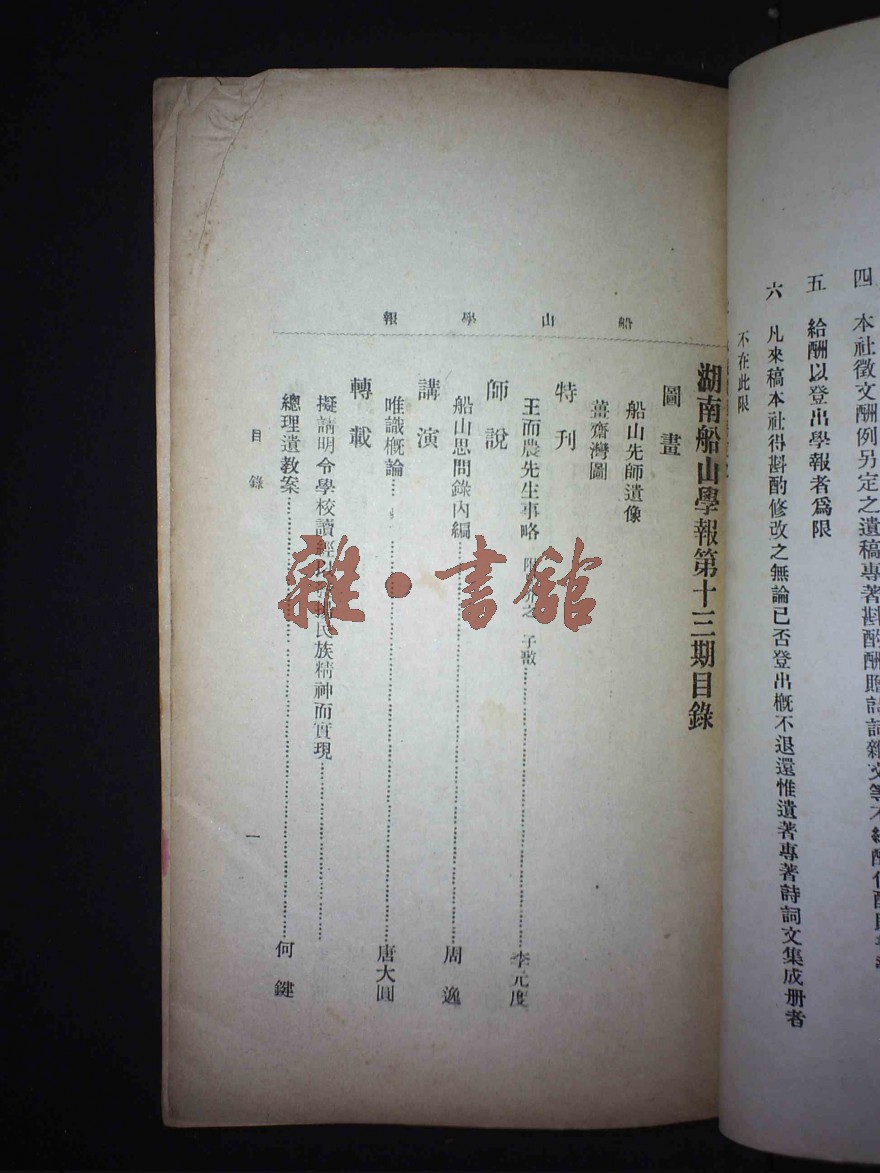 四 本社徵文酬例另定之遺稿專著斟酌酬贈詩詞雜文等不給酬
五 給酬以登出學報者爲限
六 凡來稿本社得斟酌修改之無論已否登出概不退還惟遺著專著詩詞文集成册者
不在此限
船山學報
湖南船山學報第十三期目錄
圖畫
船山先師遺像
薑齋灣圖
特刊
王而農先生事略 子敔 李元度
師說
船山思問錄內編 周逸
講演
唯識概論 唐大圓
轉載
擬請明令學校讀經 民族精神而實現
總理遺教案 何鍵
目錄 一
雜·書館